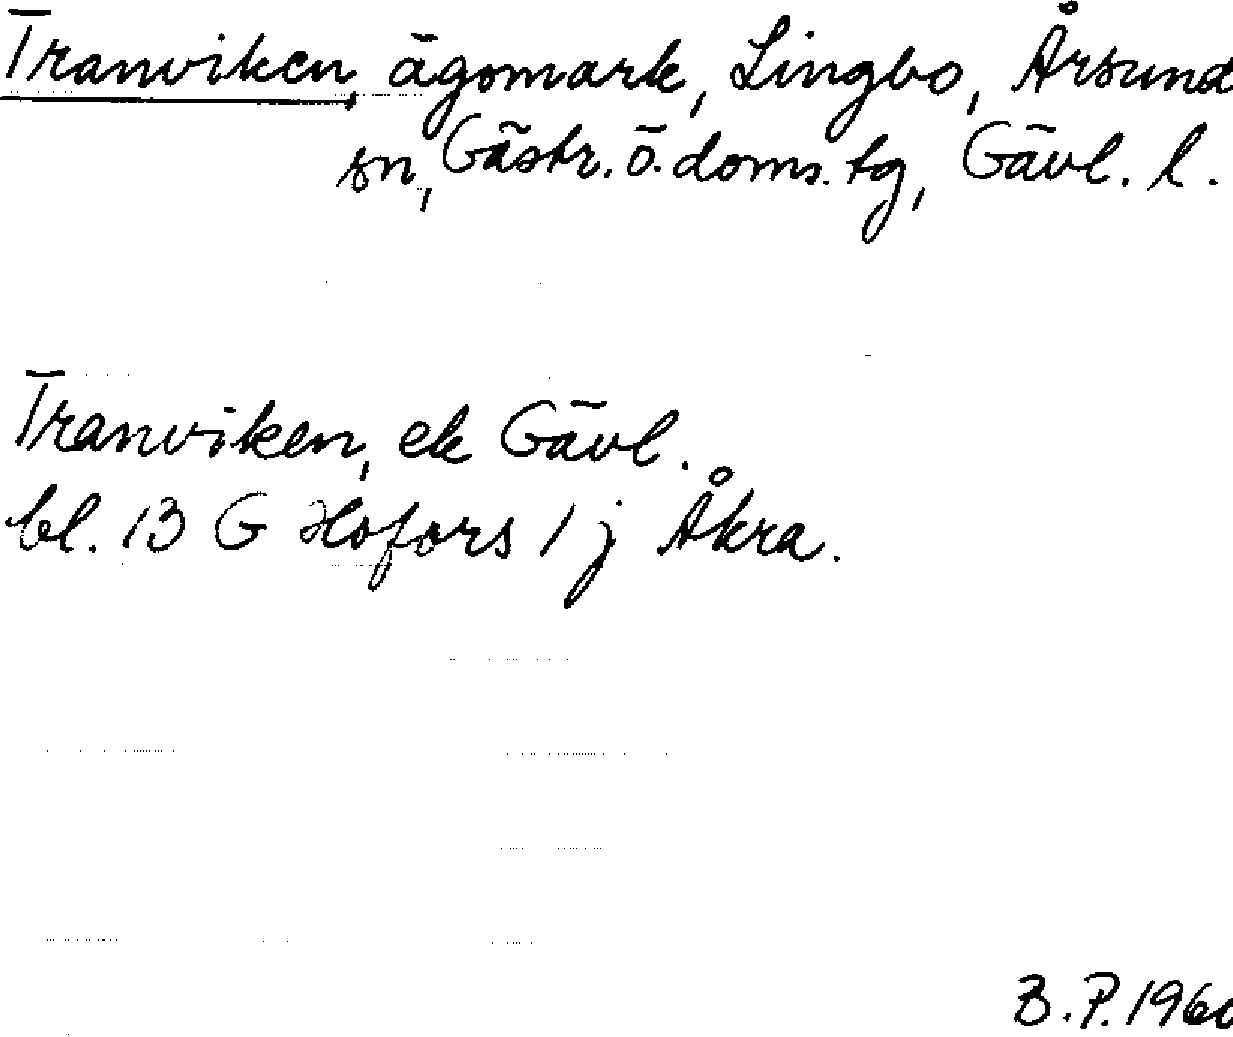 Tranviken, ägomark, Lingbo, Årsund
sn, Gästr. ö. doms. tg, Gävl. l.
Tranviken, ek Gävl.
bl. 13 G Hofors 1 j Åkra.
B.P. 1960